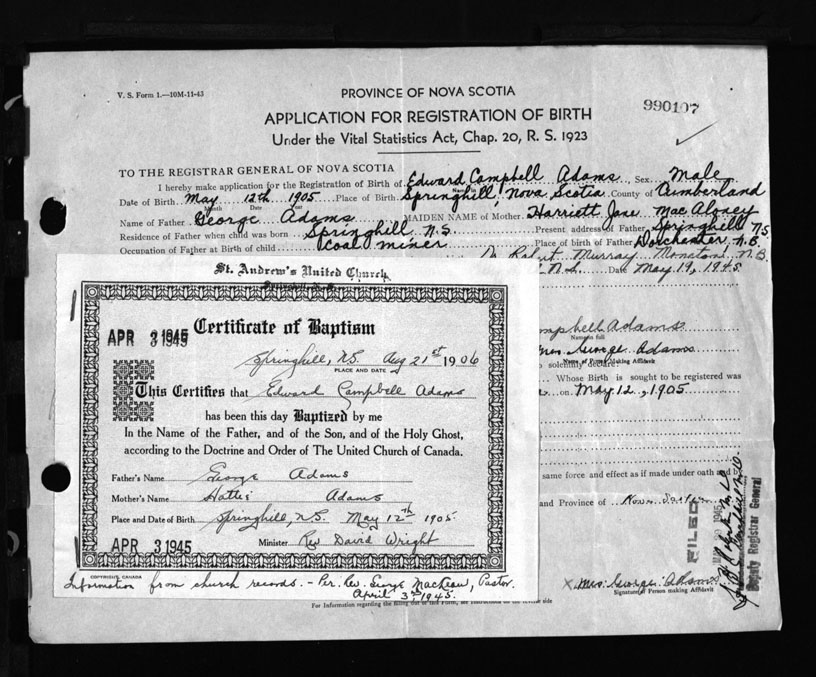 V. S. Form 1.—10M-11-43
PROVINCE OF NOVA SCOTIA
990107
APPLICATION FOR REGISTRATION OF BIRTH
Under the Vital Statistics Act, Chap. 20, R. S. 1923
TO THE REGISTRAR GENERAL OF NOVA SCOTIA
I hereby make application for the Registration of Birth of Edward Campbell Adams Sex Male
Date of Birth May 12th 1905 Place of Birth Springhill, Nova Scotia County of Cumberland
Month Date
Name of Father George Adams MAIDEN NAME of Mother Harriett Jane Mac Aloney
Residence of Father when child was born Springhill N.S. Present address of Father Springhill N.S
Occupation of Father at Birth of child Coal miner Place of birth of Father Dorchester, N.B.
Dr. Robert Murray Moncton N.B.
N.S. Date May 19, 1945.
St. Andrew's United Church
Springhill, N. S.
APR 3 1945
Certificate of Baptism
Springhill, N.S. Aug 21st 1906
PLACE AND DATE
This Certifies that Edward Campbell Adams
has been this day Baptized by me
In the Name of the Father, and of the Son, and of the Holy Ghost,
according to the Doctrine and Order of The United Church of Canada.
Father's Name George Adams
Mother's Name Hattie Adams
Place and Date of Birth Springhill, N.S. May 12th 1905
APR 3 1945
Minister Rev David Wright
COPYRIGHT, CANADA
Information from church records. - Per. Rev. George MacLean, Pastor.
April 3rd 1945.
mpbell Adams
Name in full
Mrs. George Adams
Name of Person Making Affidavit
solemnly declare:
Whose Birth is sought to be registered was
on May 12, 1905
same force and effect as if made under oath and by
and Province of Nova Scotia
FILED
1945
Deputy Registrar General
X Mrs. George Adams
Signature of Person making Affidavit
For Information regarding the filling out of this Form, see Instructions on the reverse side